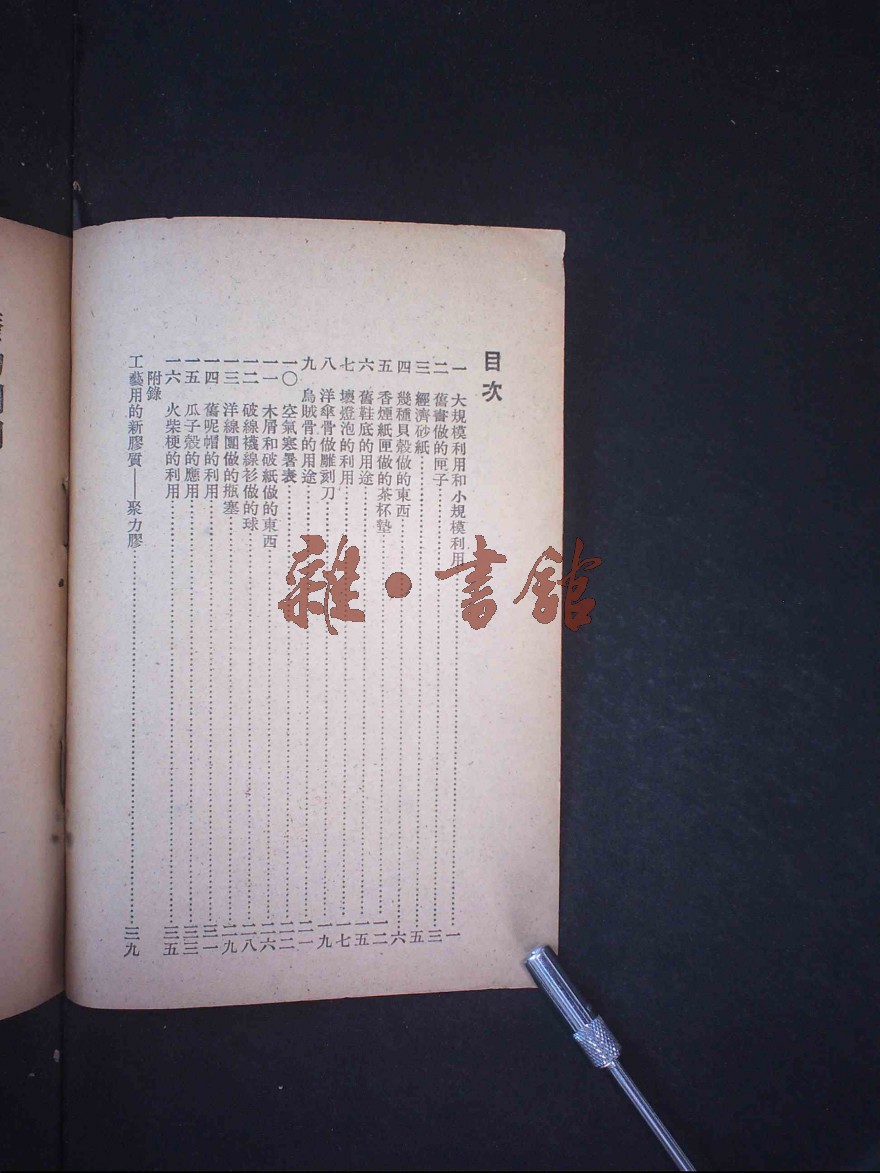 目次
一 大規模利用和小規模利用……一
二 舊書做的匣子……三
三 經濟砂紙……五
四 幾種貝殼做的東西……六
五 香煙紙匣做的茶杯墊……一二
六 舊鞋底的用途……一五
七 壞燈泡的利用……一七
八 洋傘骨做雕刻刀……一九
九 烏賊骨的用途……二一
一〇 空氣寒暑表……二二
一一 木屑和破紙做的東西……二六
一二 破線襪線衫做的球……二八
一三 洋線團做的瓶塞……二九
一四 舊呢帽的利用……三一
一五 瓜子殼的應用……三三
一六 火柴梗的利用……三五
附錄
工藝用的新膠質——聚力膠……三九
雜·書館